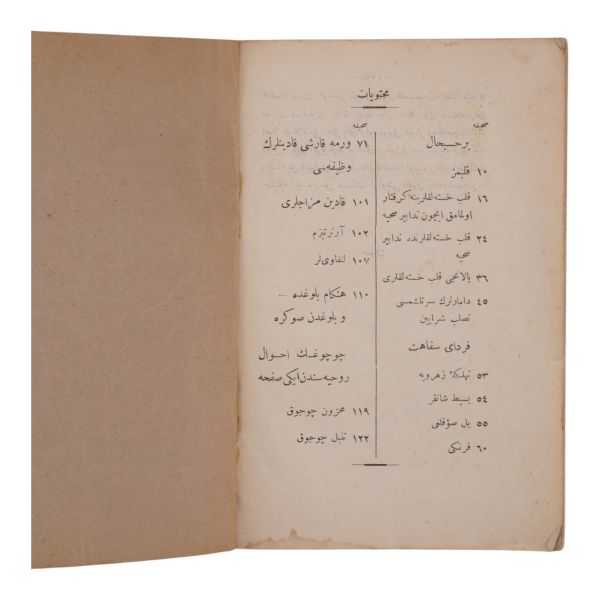 محتویات
صحیفه
برحسبحال
۱۰ قلبمز
۱۶ قلب خسته‌لقلرینه گرفتار
اولمامق ایچون تدابیر صحیه
۲۴ قلب خسته‌لقلرنده تدابیر
صحیه
۳۶ یالانجی قلب خسته‌لقلری
۴۵ دامارلرك سرتلشمسی
تصلب شرایین
فردای سفاهت
۵۳ تهلکهٔ زهرویه
۵۴ بسیط شانقر
۵۵ بل صوٌقلغی
۶۰ فرنکی
صحیفه
۷۱ ورمه قارشی قادینلرك
وظیفه‌سی
۱۰۱ قادین مزاجلری
۱۰۲ آرتریتیزم
۱۰۷ لنفاوی‌لر
۱۱۰ هنکام بلوغده —
و بلوغدن صوکره
چوجوغك احوال
روحیه‌سندن ایکی صفحه
۱۱۹ محزون چوجوق
۱۲۲ تنبل چوجوق